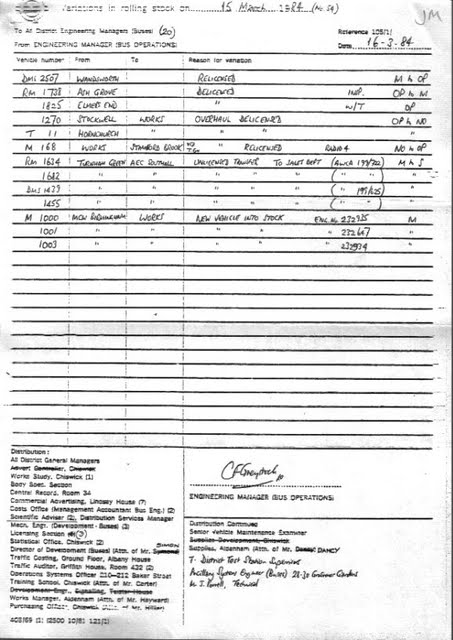 Variations in rolling stock on 15 March 1984 (No. 54)
JM
To All District Engineering Managers (Buses) (20)
Reference 105/1/
From ENGINEERING MANAGER (BUS OPERATIONS)
Date 16-3-84
Vehicle number From To Reason for variation
DMS 2507 WANDSWORTH RELICENSED M & OP
RM 1738 ASH GROVE DELICENSED INSP. OP & M
1825 ELMERS END " W/T OP
1270 STOCKWELL WORKS OVERHAUL DELICENSED OP & NO
T 11 HORNCHURCH " " " "
M 168 WORKS STAMFORD BROOK RELICENSED NO & OP
RM 1634 TURNHAM GREEN AEC SOUTHALL UNLICENSED TRANSFER TO SALES DEPT M & S
1642 " " " " " "
DMS 1439 " " " " " "
1455 " " " " " "
M 1000 MCW BIRMINGHAM WORKS NEW VEHICLE INTO STOCK ENG. No 232735 M
1001 " " " " 232647 "
1003 " " " " 232934 "
ENGINEERING MANAGER (BUS OPERATIONS)
Distribution:
All District General Managers
Advert Controller, Chiswick
Works Study, Chiswick (1)
Body Spec. Section
Central Record, Room 34
Commercial Advertising, Lindsay House (7)
Costs Office (Management Accountant Bus Eng.) (2)
Scientific Adviser (2), Distribution Services Manager
Mech. Engr. (Development - Buses) (3)
Licensing Section (3)
Statistical Office, Chiswick (2)
Director of Development (Buses) (Attn. of Mr.
Traffic Costing, Ground Floor, Albany House
Traffic Auditor, Griffith House, Room 432 (2)
Operations Systems Officer 210—212 Baker Street
Training School, Chiswick (Attn. of Mr. Carter)
Development Engr., Signalling,
Works Manager, Aldenham (Attn. of Mr. Hayward)
Purchasing Officer, Chiswick (Attn. of Mr. Hillier)
Distribution Continued
Senior Vehicle Maintenance Examiner
Supplies Development, Chiswick
Supplies, Aldenham (Attn. of Mr. DANCY)
7. District Test Station Supervisors
Ancillary Systems Engineer (Buses) 28-30 Grosvenor Gardens
Technical